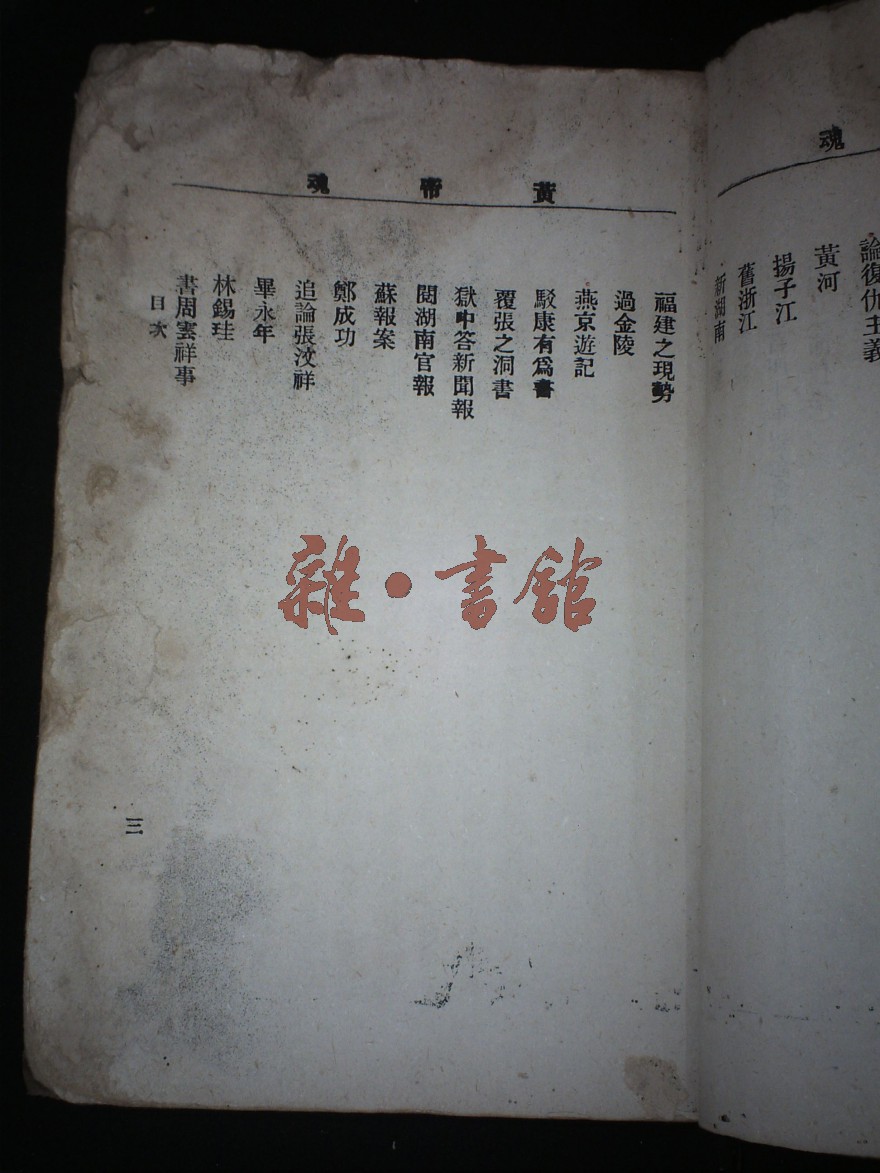 魂
論復仇主義
黃河
揚子江
舊浙江
新湖南
黃帝魂
福建之現勢
過金陵
燕京遊記
駁康有爲書
覆張之洞書
獄中答新聞報
閱湖南官報
蘇報案
鄭成功
追論張汶祥
畢永年
林錫珪
書周雲祥事
目次
三
雜·書館